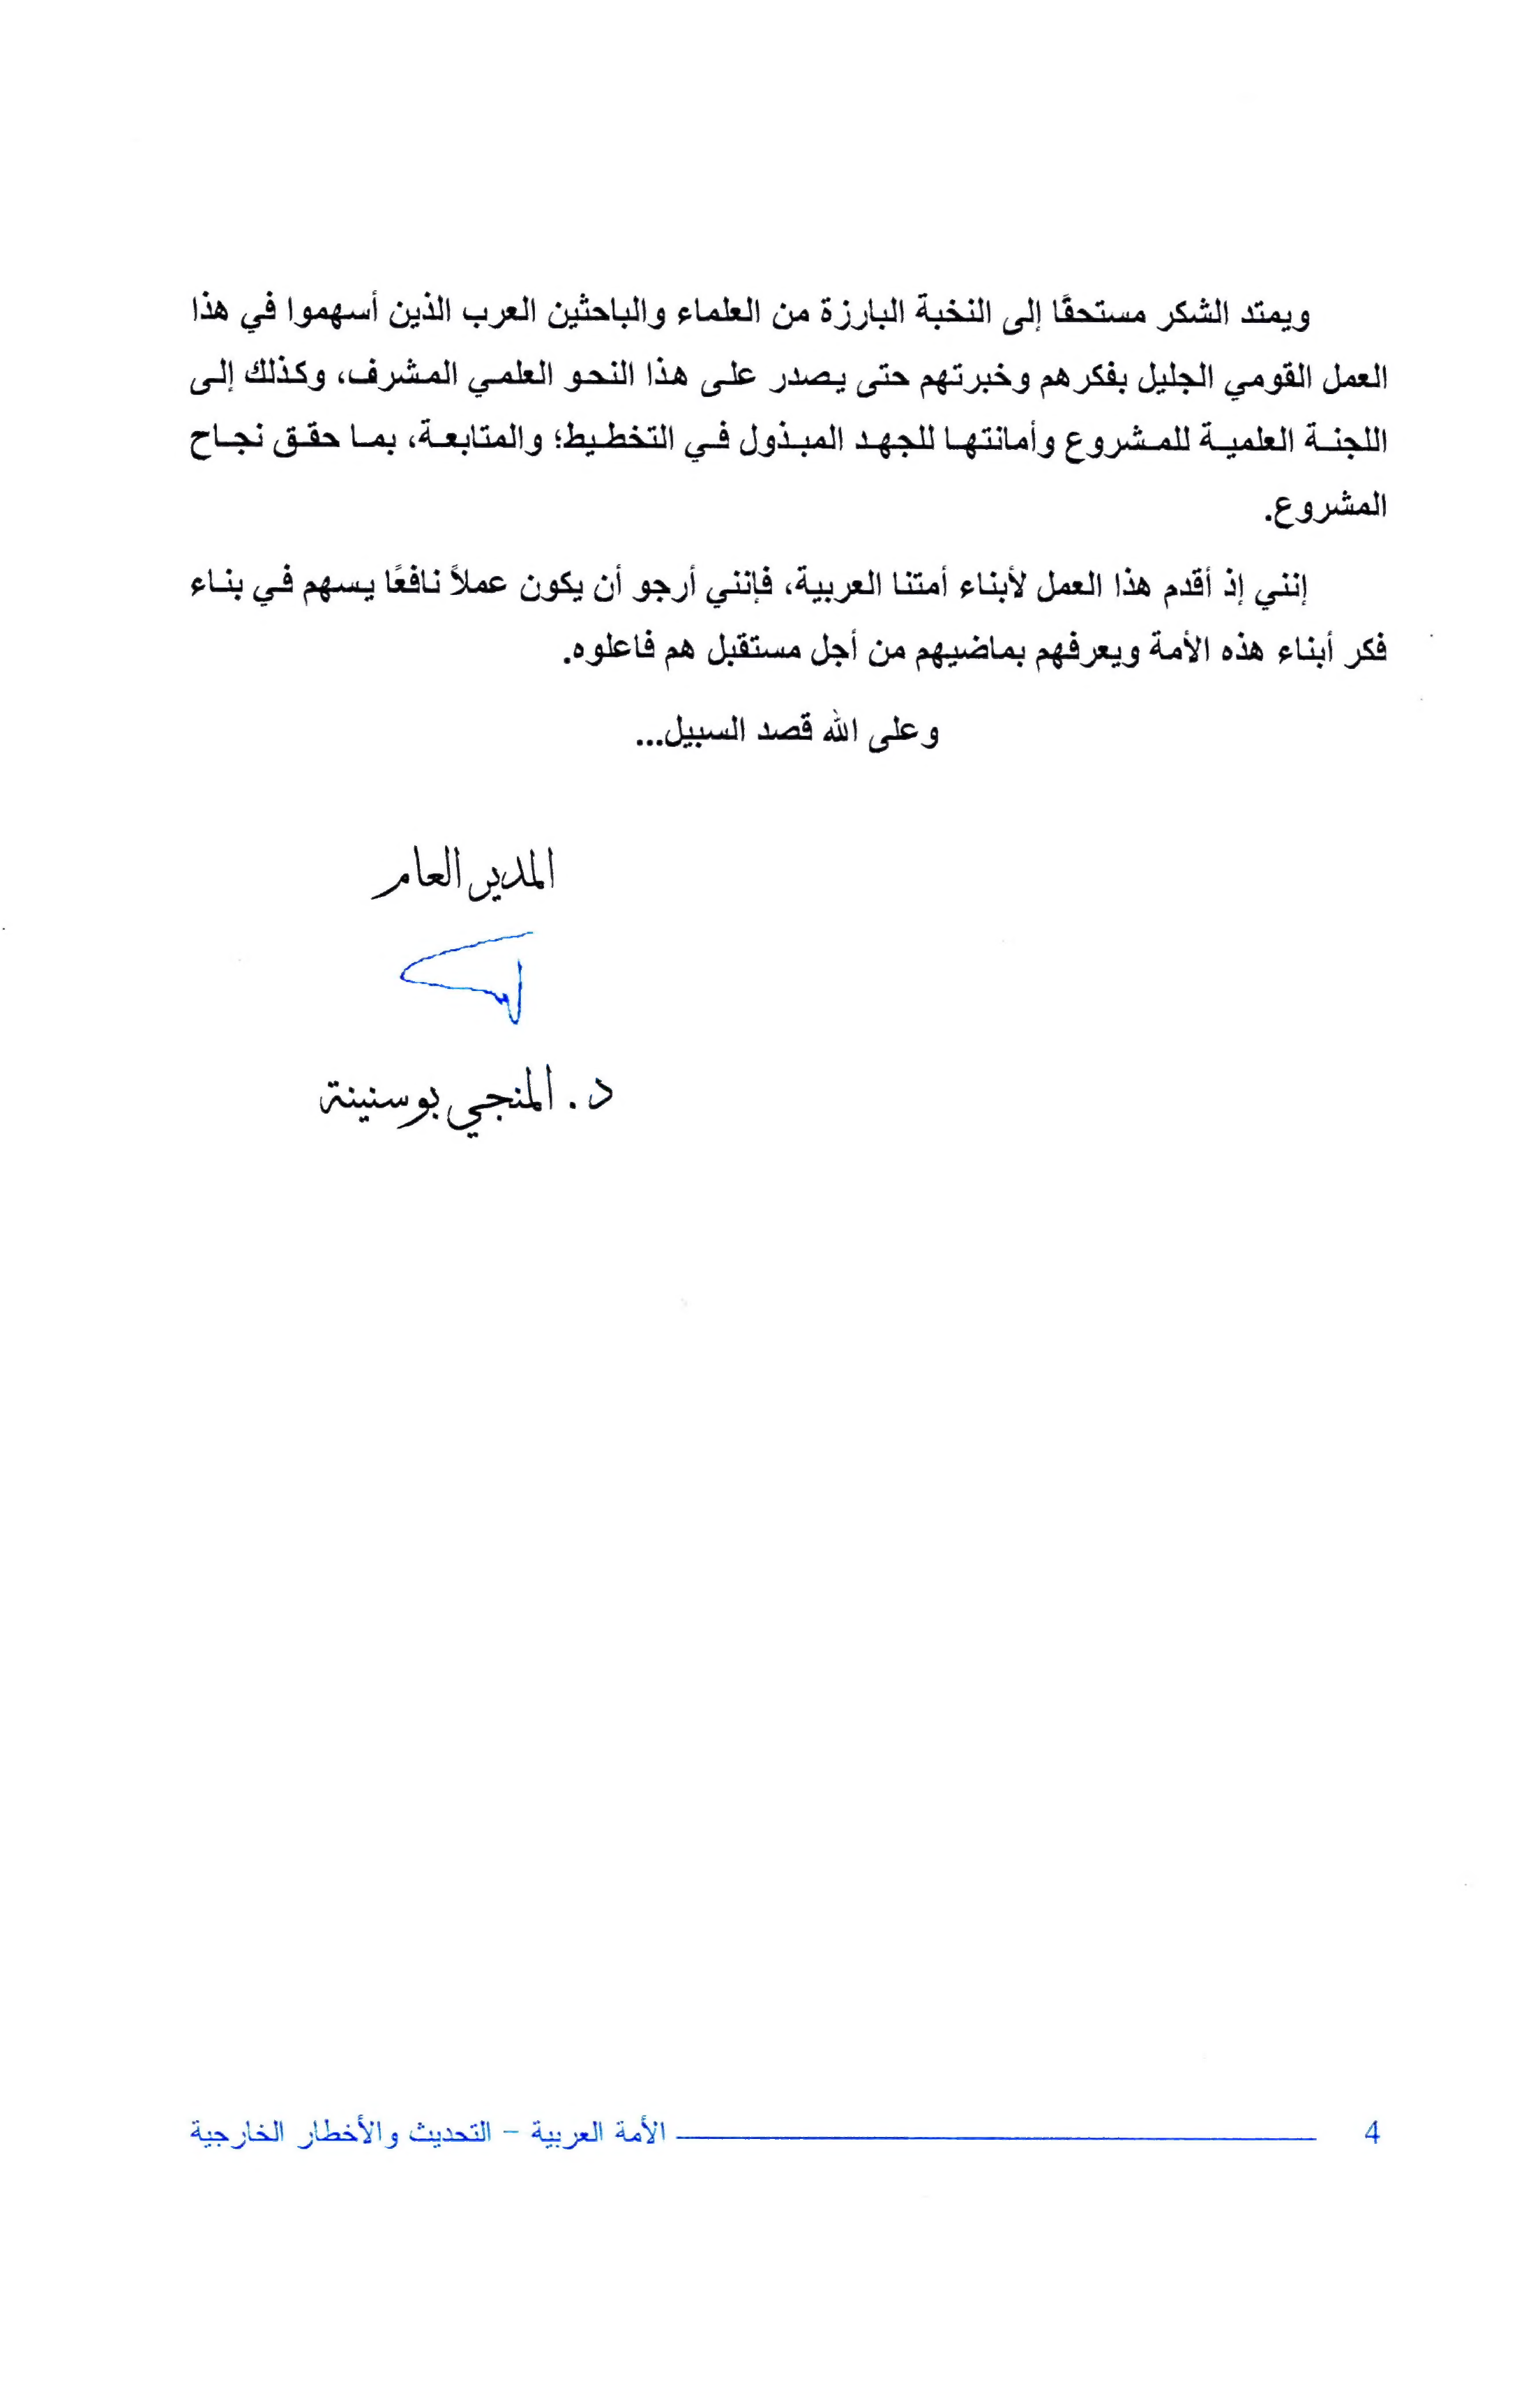 ويمتد الشكر مستحقًا إلى النخبة البارزة من العلماء والباحثين العرب الذين أسهموا في هذا
العمل القومي الجليل بفكرهم وخبرتهم حتى يصدر على هذا النحو العلمي المشرف، وكذلك إلى
اللجنة العلمية للمشروع وأمانتها للجهد المبذول في التخطيط؛ والمتابعة، بما حقق نجاح
المشروع.
إنني إذ أقدم هذا العمل لأبناء أمتنا العربية، فإنني أرجو أن يكون عملاً نافعًا يسهم في بناء
فكر أبناء هذه الأمة ويعرفهم بماضيهم من أجل مستقبل هم فاعلوه.
وعلى الله قصد السبيل...
المدير العام
د. المنجي بوسنينة
4 الأمة العربية – التحديث والأخطار الخارجية